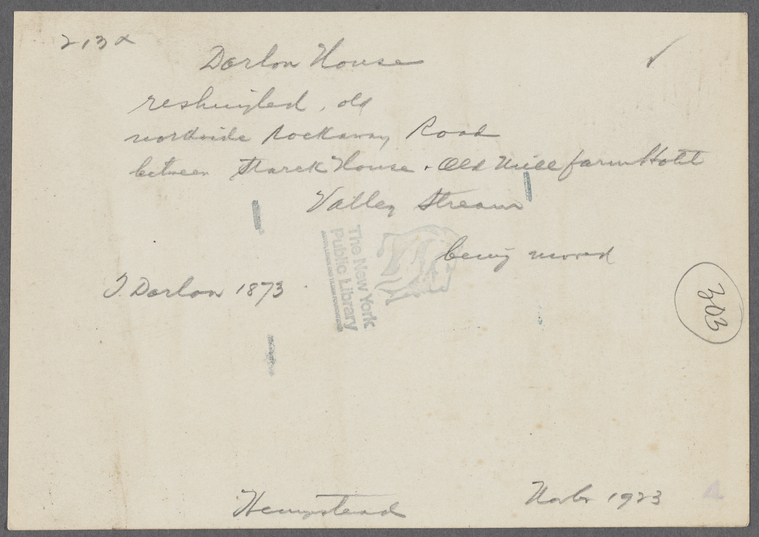 213x
Dorlon House
reshingled, old
northside Rockaway Road
between Starck House & Old Mill farm Hotel
Valley Stream
being moved
J. Dorlon 1873
The New York
Public Library
303
Hempstead
Novbr 1923
4